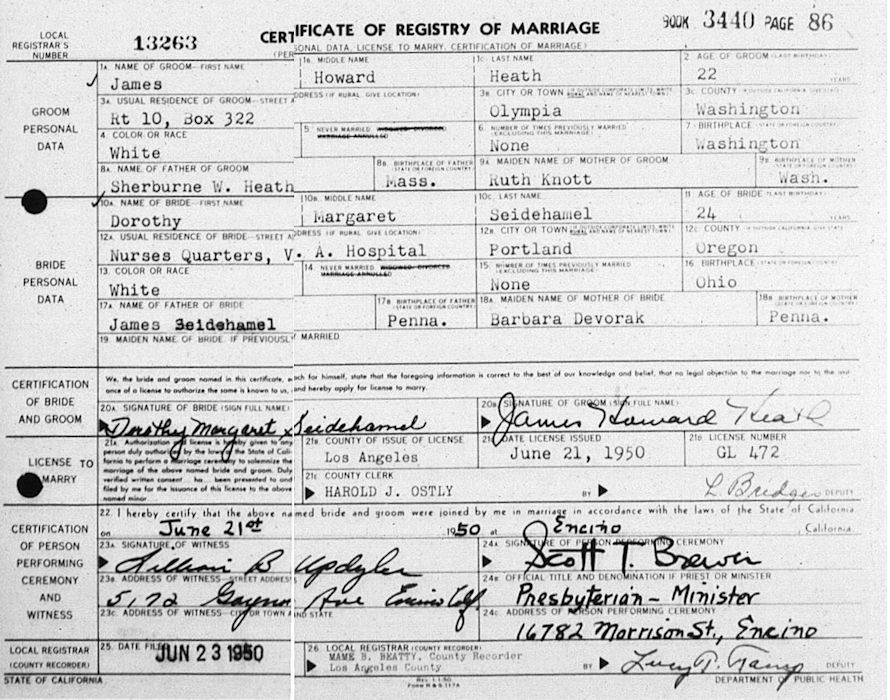 LOCAL REGISTRAR'S NUMBER
13263
CERTIFICATE OF REGISTRY OF MARRIAGE
BOOK 3440 PAGE 86
SONAL DATA, LICENSE TO MARRY, CERTIFICATION OF MARRIAGE)
GROOM PERSONAL DATA
1A. NAME OF GROOM—FIRST NAME
1B. MIDDLE NAME
1C. LAST NAME
2. AGE OF GROOM (LAST BIRTHDAY)
James
Howard
Heath
22
YEARS
3A. USUAL RESIDENCE OF GROOM—STREET ADDRESS (IF RURAL, GIVE LOCATION)
3B. CITY OR TOWN
3C. COUNTY
Rt 10, Box 322
Olympia
Washington
4. COLOR OR RACE
5. NEVER MARRIED WIDOWED DIVORCED MARRIAGE ANNULLED
6. NUMBER OF TIMES PREVIOUSLY MARRIED (EXCLUDING THIS MARRIAGE)
7. BIRTHPLACE (STATE OR FOREIGN COUNTRY)
White
None
Washington
8A. NAME OF FATHER OF GROOM
8B. BIRTHPLACE OF FATHER (STATE OR FOREIGN COUNTRY)
9A. MAIDEN NAME OF MOTHER OF GROOM
9B. BIRTHPLACE OF MOTHER (STATE OR FOREIGN COUNTRY)
Sherburne W. Heath
Mass.
Ruth Knott
Wash.
BRIDE PERSONAL DATA
10A. NAME OF BRIDE—FIRST NAME
10B. MIDDLE NAME
10C. LAST NAME
11. AGE OF BRIDE (LAST BIRTHDAY)
Dorothy
Margaret
Seidehamel
24
YEARS
12A. USUAL RESIDENCE OF BRIDE—STREET ADDRESS (IF RURAL, GIVE LOCATION)
12B. CITY OR TOWN
12C. COUNTY
Nurses Quarters, V. A. Hospital
Portland
Oregon
13. COLOR OR RACE
14. NEVER MARRIED WIDOWED DIVORCED MARRIAGE ANNULLED
15. NUMBER OF TIMES PREVIOUSLY MARRIED (EXCLUDING THIS MARRIAGE)
16. BIRTHPLACE (STATE OR FOREIGN COUNTRY)
White
None
Ohio
17A. NAME OF FATHER OF BRIDE
17B. BIRTHPLACE OF FATHER (STATE OR FOREIGN COUNTRY)
18A. MAIDEN NAME OF MOTHER OF BRIDE
18B. BIRTHPLACE OF MOTHER (STATE OR FOREIGN COUNTRY)
James Seidehamel
Penna.
Barbara Devorak
Penna.
19. MAIDEN NAME OF BRIDE IF PREVIOUSLY MARRIED
CERTIFICATION OF BRIDE AND GROOM
We, the bride and groom named in this certificate, each for himself, state that the foregoing information is correct to the best of our knowledge and belief, that no legal objection to the marriage nor to the issu
ance of a license to authorize the same is known to us, and hereby apply for license to marry.
20A. SIGNATURE OF BRIDE (SIGN FULL NAME)
20B. SIGNATURE OF GROOM (SIGN FULL NAME)
Dorothy Margaret Seidehamel
James Howard Heath
LICENSE TO MARRY
21A. Authorization and license is hereby given to any
person duly authorized by the laws of the State of Cali-
fornia to perform a marriage ceremony to solemnize the
marriage of the above named bride and groom. Duly
verified written consent has been presented to and
filed by me for the issuance of this license to the above
named minor
21B. COUNTY OF ISSUE OF LICENSE
DATE LICENSE ISSUED
LICENSE NUMBER
Los Angeles
June 21, 1950
GL 472
COUNTY CLERK
HAROLD J. OSTLY
BY
L. Bridges DEPUTY
CERTIFICATION OF PERSON PERFORMING CEREMONY AND WITNESS
22. I hereby certify that the above named bride and groom were joined by me in marriage in accordance with the laws of the State of California
on June 21st 1950 at Encino, California.
23A. SIGNATURE OF WITNESS
24A. SIGNATURE OF PERSON PERFORMING CEREMONY
Lillian B Updyke
Scott T. Brewer
23B. ADDRESS OF WITNESS—STREET ADDRESS
24B. OFFICIAL TITLE AND DENOMINATION IF PRIEST OR MINISTER
5172 Gaynor Ave Encino Calf
Presbyterian - Minister
23C. ADDRESS OF WITNESS—CITY OR TOWN AND STATE
24C. ADDRESS OF PERSON PERFORMING CEREMONY
16782 Morrison St., Encino
LOCAL REGISTRAR (COUNTY RECORDER)
25. DATE FILED
JUN 23 1950
26. LOCAL REGISTRAR (COUNTY RECORDER)
MAME B. BEATTY, County Recorder
Los Angeles County
BY
DEPUTY
STATE OF CALIFORNIA
DEPARTMENT OF PUBLIC HEALTH